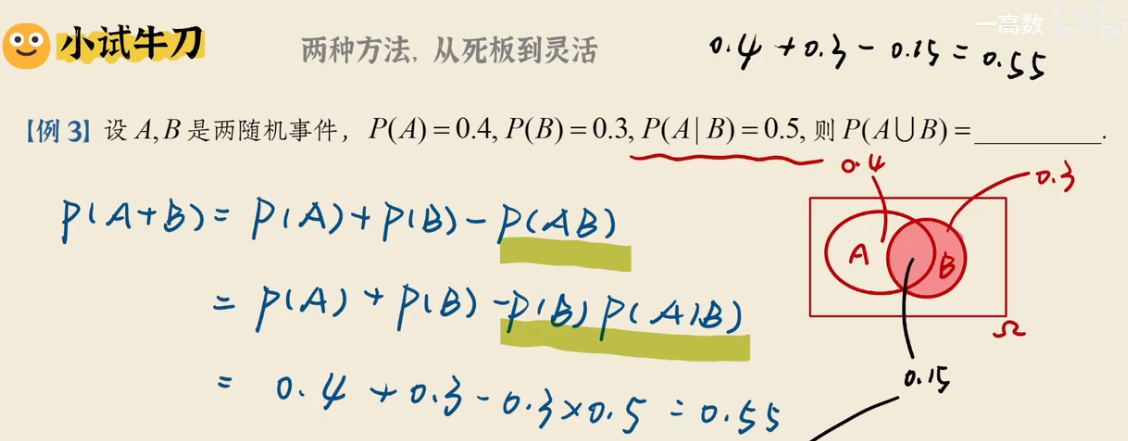 小试牛刀
两种方法, 从死板到灵活
0.4 + 0.3 - 0.15 = 0.55
一高数 bilibili
【例 3】设 A, B 是两随机事件, P(A) = 0.4, P(B) = 0.3, P(A | B) = 0.5, 则 P(A∪B) = ________.
0.4
0.3
A
B
Ω
0.15
P(A+B) = P(A) + P(B) - P(AB)
= P(A) + P(B) - P(B) P(A|B)
= 0.4 + 0.3 - 0.3×0.5 = 0.55